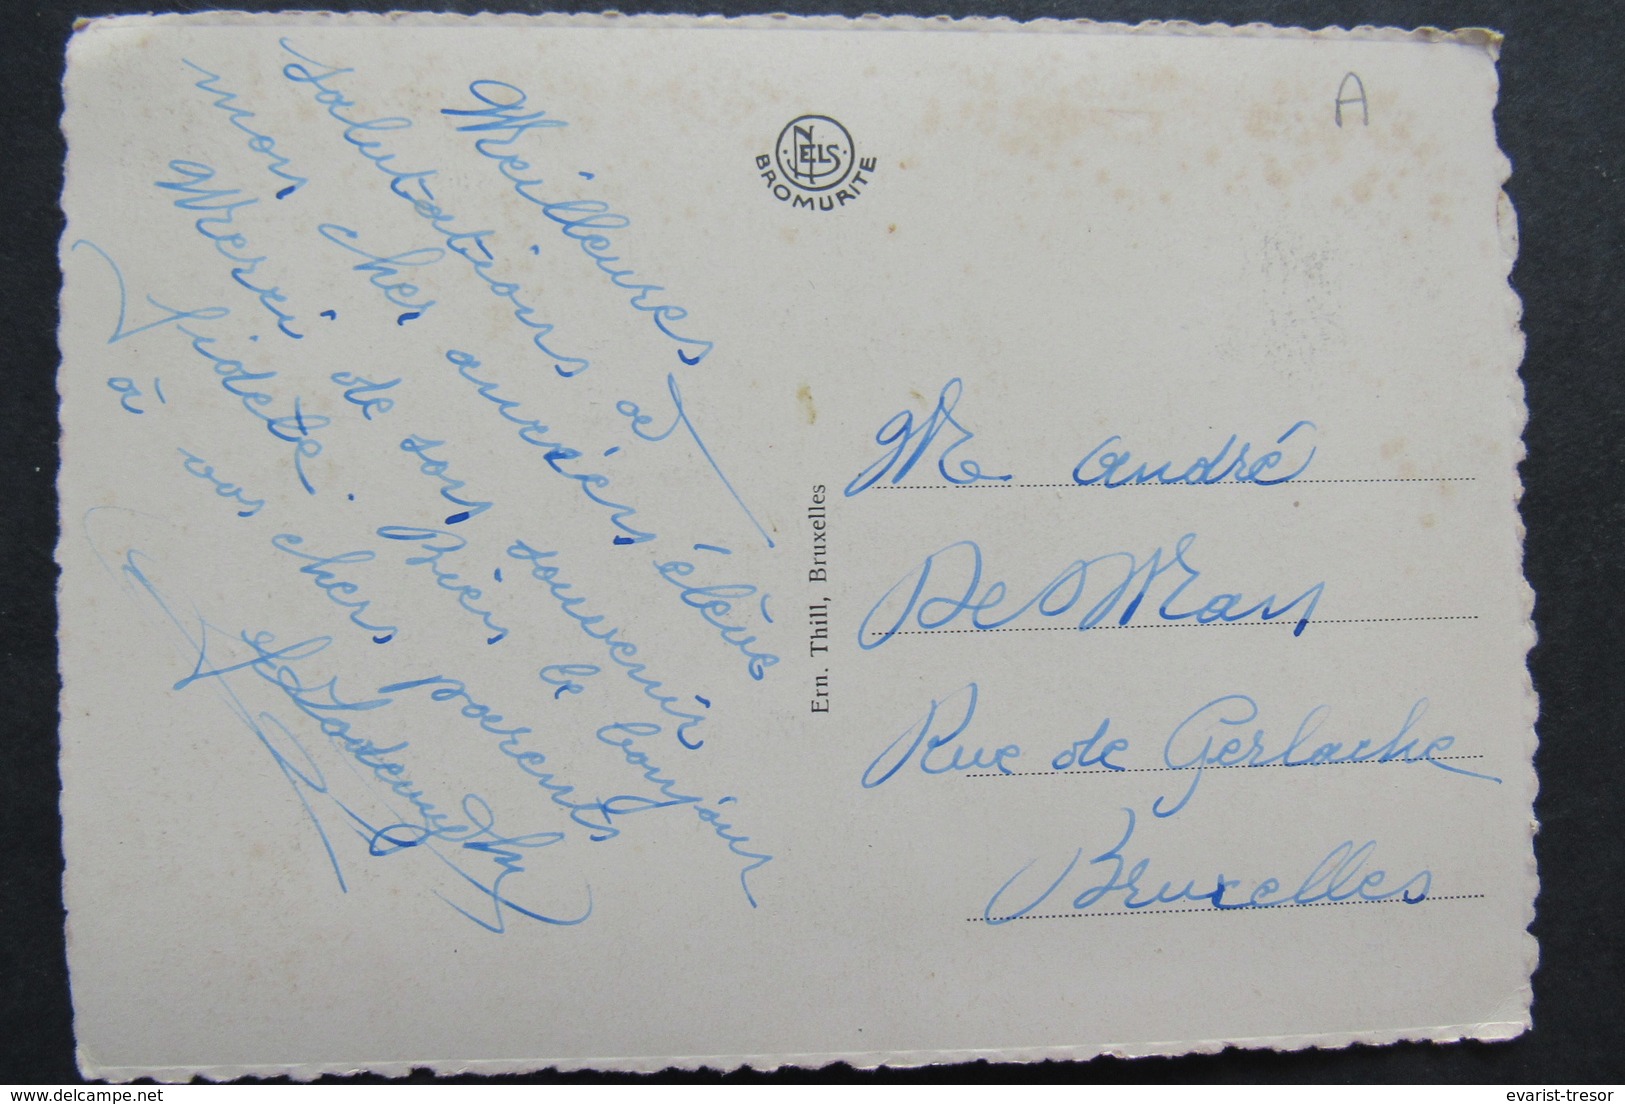 Meilleures
salutations à
mon cher ancien élève
Merci de son souvenir
fidèle. Bien le bonjour
à vos chers parents
NELS
BROMURITE
A
Ern. Thill, Bruxelles
Mr André
De Man
Rue de Gerlache
Bruxelles
www.delcampe.net
evarist-tresor